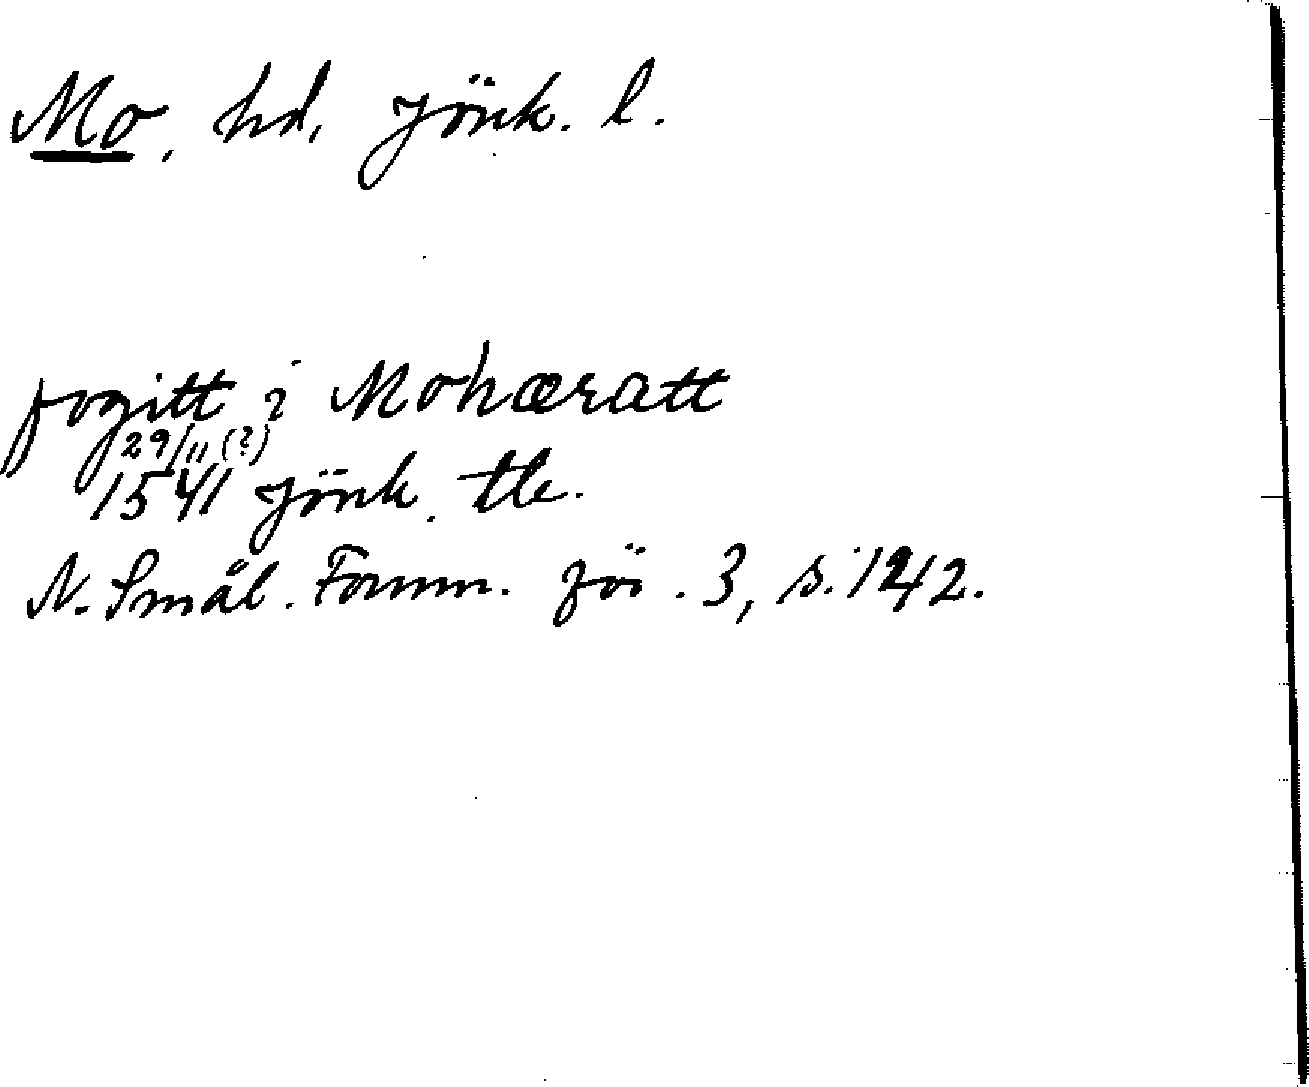 Mo, hd, Jönk. l.
fogitt i Mohæratt
29/11 (?)
1541 Jönk. tb.
N. Smål. Fornm. för. 3, s. 142.